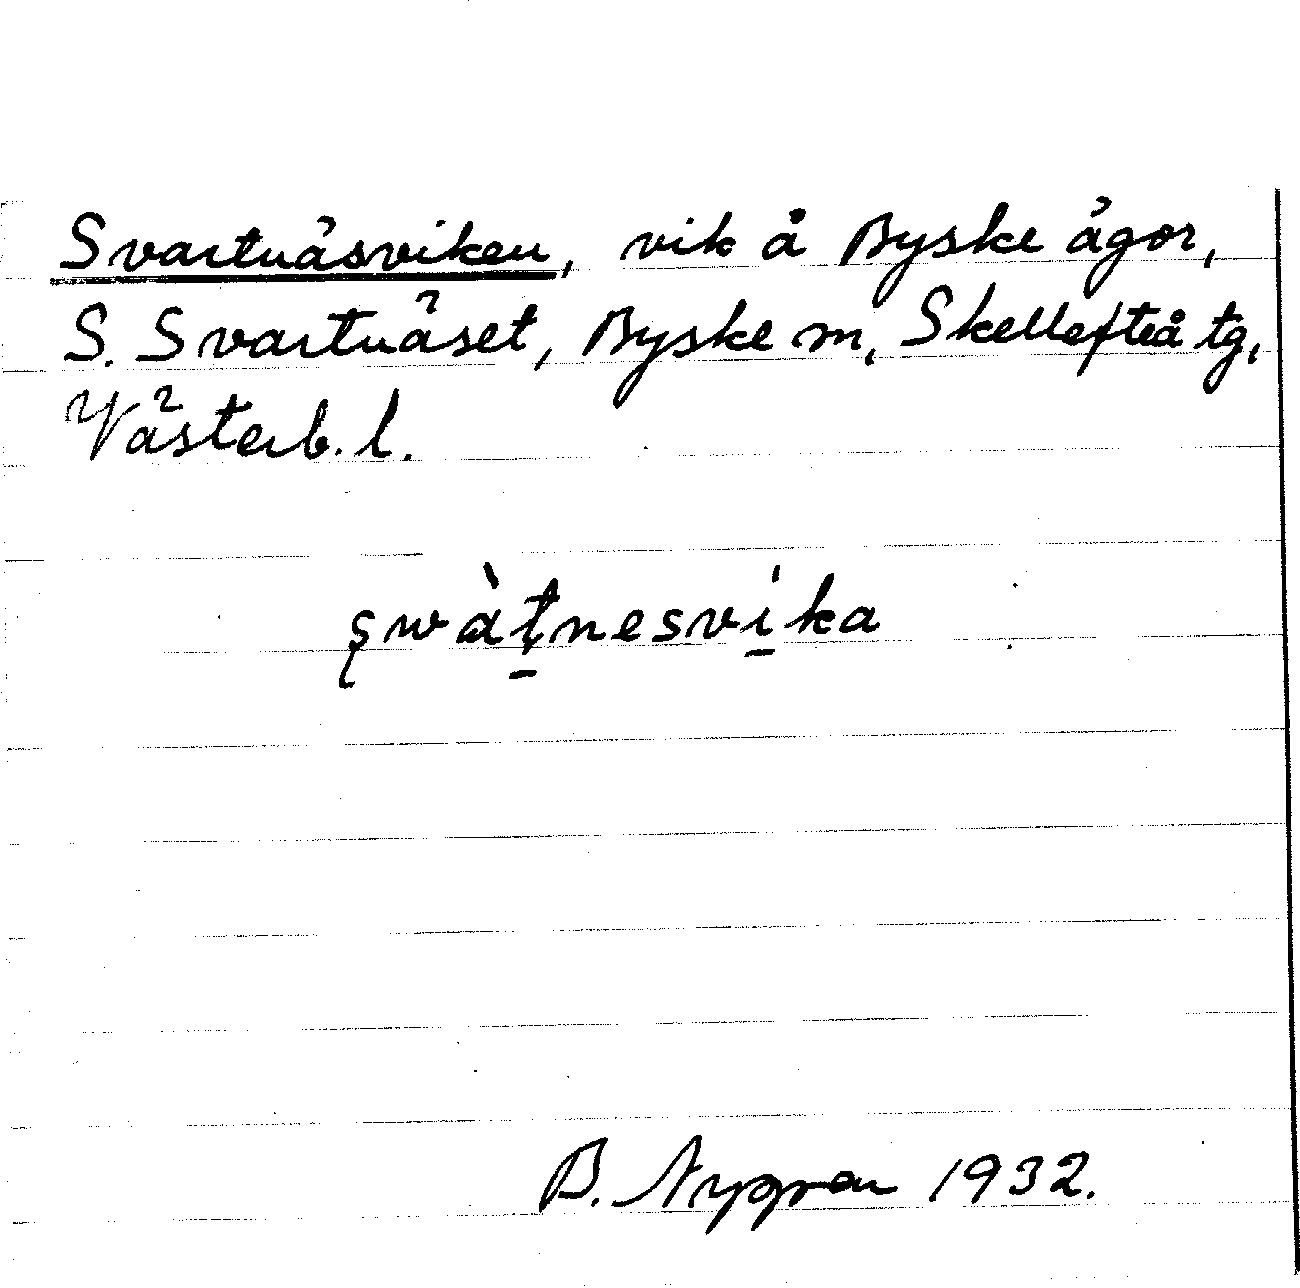 Svartnäsviken, vik å Byske ägor,
S. Svartnäset, Byske sn, Skellefteå tg,
Västerb. l.
șwàṯnesvi̱ka
B. Nygren 1932.